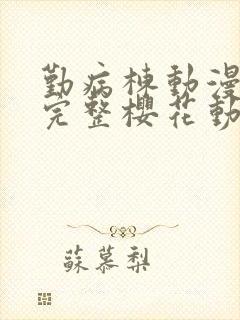 勤病棟動漫
完整櫻花動
蘇慕梨